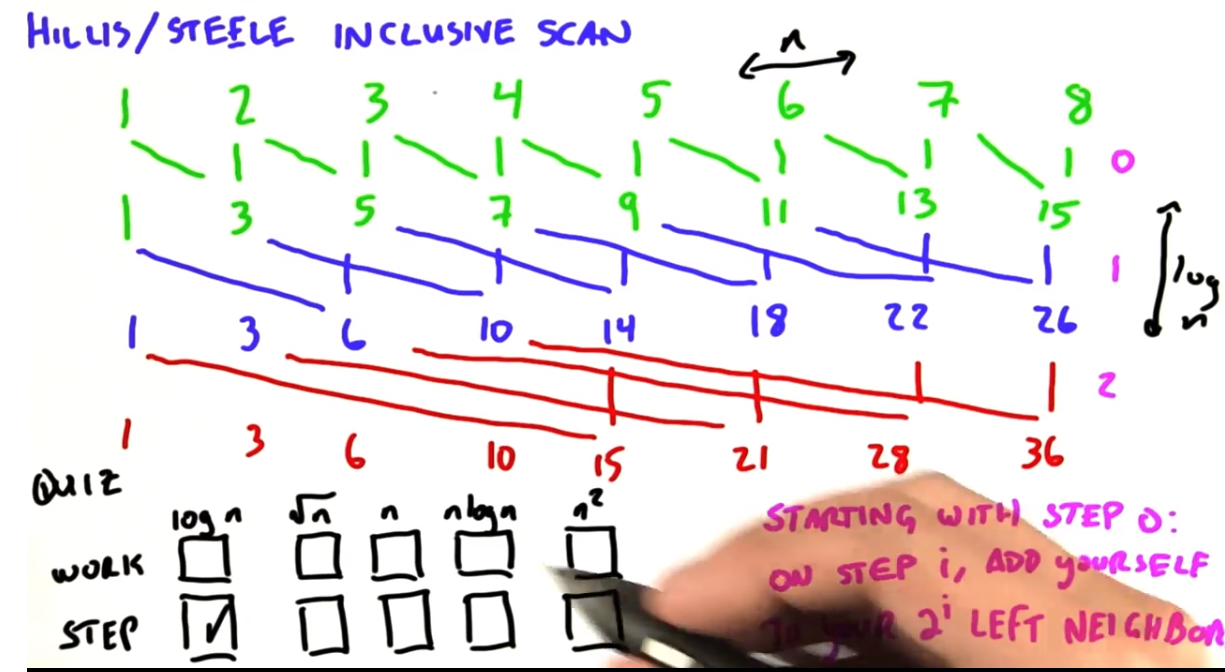 HILLIS/STEELE INCLUSIVE SCAN
n
1 2 3 4 5 6 7 8
0
1 3 5 7 9 11 13 15
1
log n
1 3 6 10 14 18 22 26
2
1 3 6 10 15 21 28 36
QUIZ
log n √n n n log n n²
WORK
STEP
STARTING WITH STEP 0:
ON STEP i, ADD YOURSELF
TO YOUR 2^i LEFT NEIGHBOR